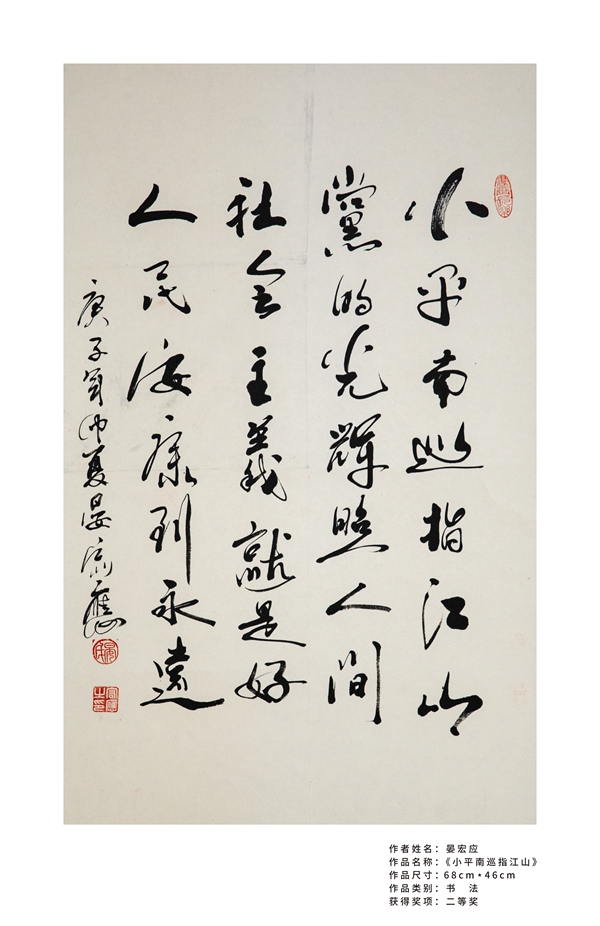 小平南巡指江山
黨的光輝照人間
社会主義就是好
人民安康到永遠
庚子年仲夏晏宏應
作者姓名：晏宏应
作品名称：《小平南巡指江山》
作品尺寸：68cm*46cm
作品类别：书 法
获得奖项：二等奖